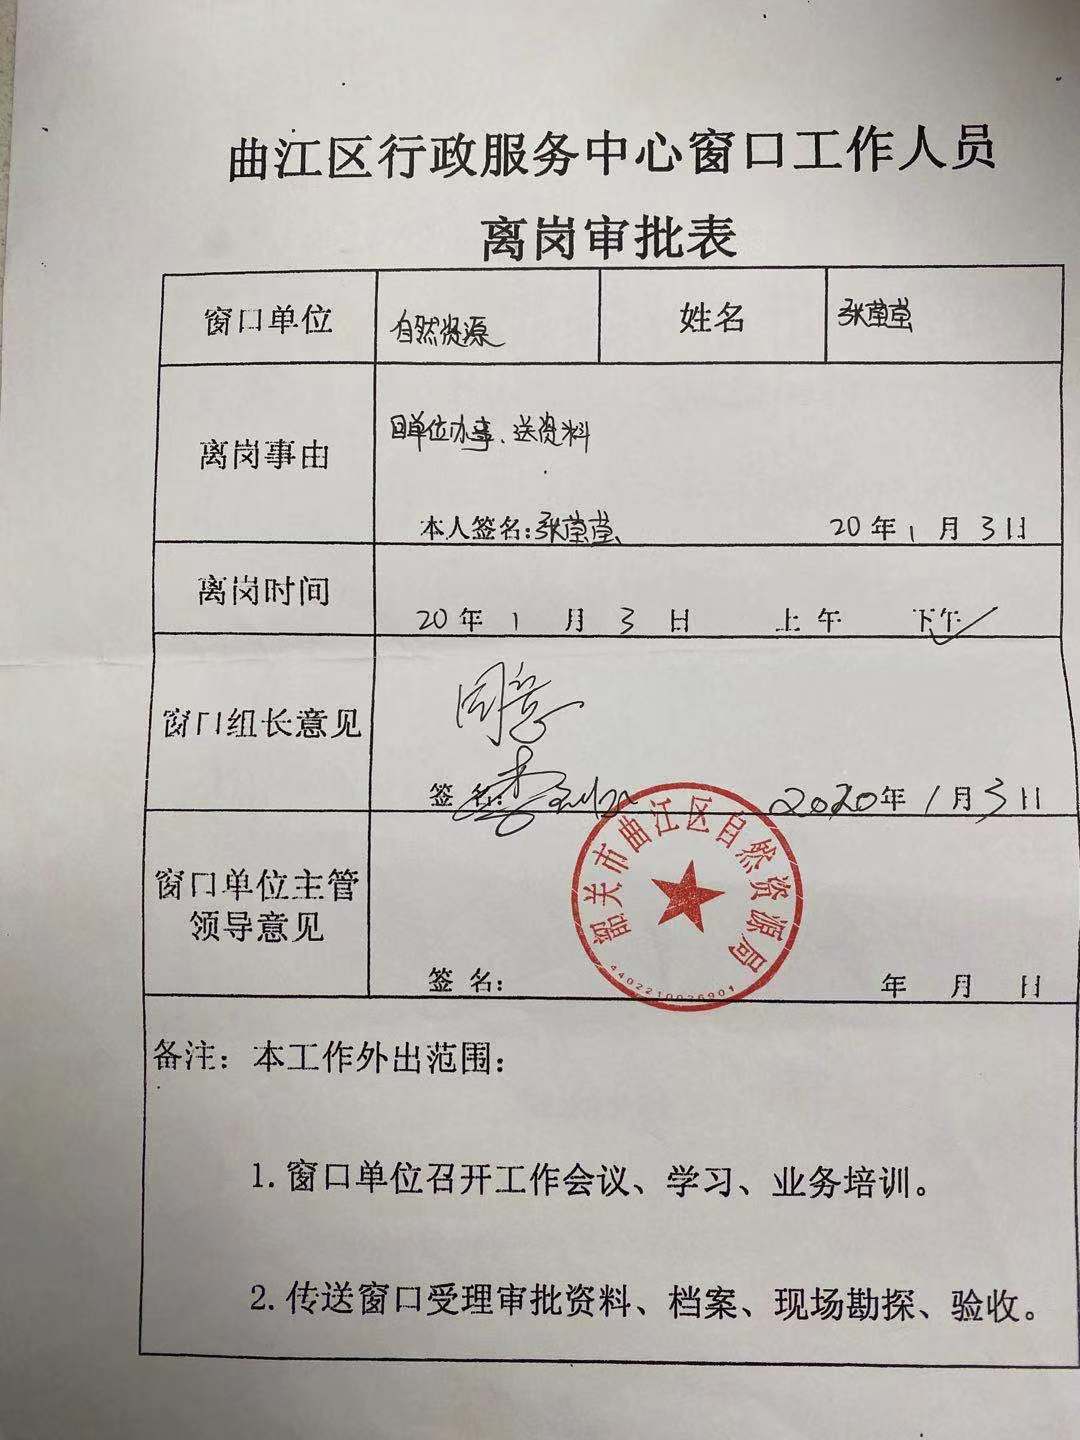 曲江区行政服务中心窗口工作人员
离岗审批表
窗口单位 自然资源 姓名 张莹莹
离岗事由
回单位办事、送资料
本人签名:张莹莹 20年1月3日
离岗时间 20年1月3日 上午 下午✓
窗口组长意见
同意
签名: 2020年1月3日
窗口单位主管
领导意见
韶关市曲江区自然资源局
签名: 年 月 日
备注：本工作外出范围：
1.窗口单位召开工作会议、学习、业务培训。
2.传送窗口受理审批资料、档案、现场勘探、验收。